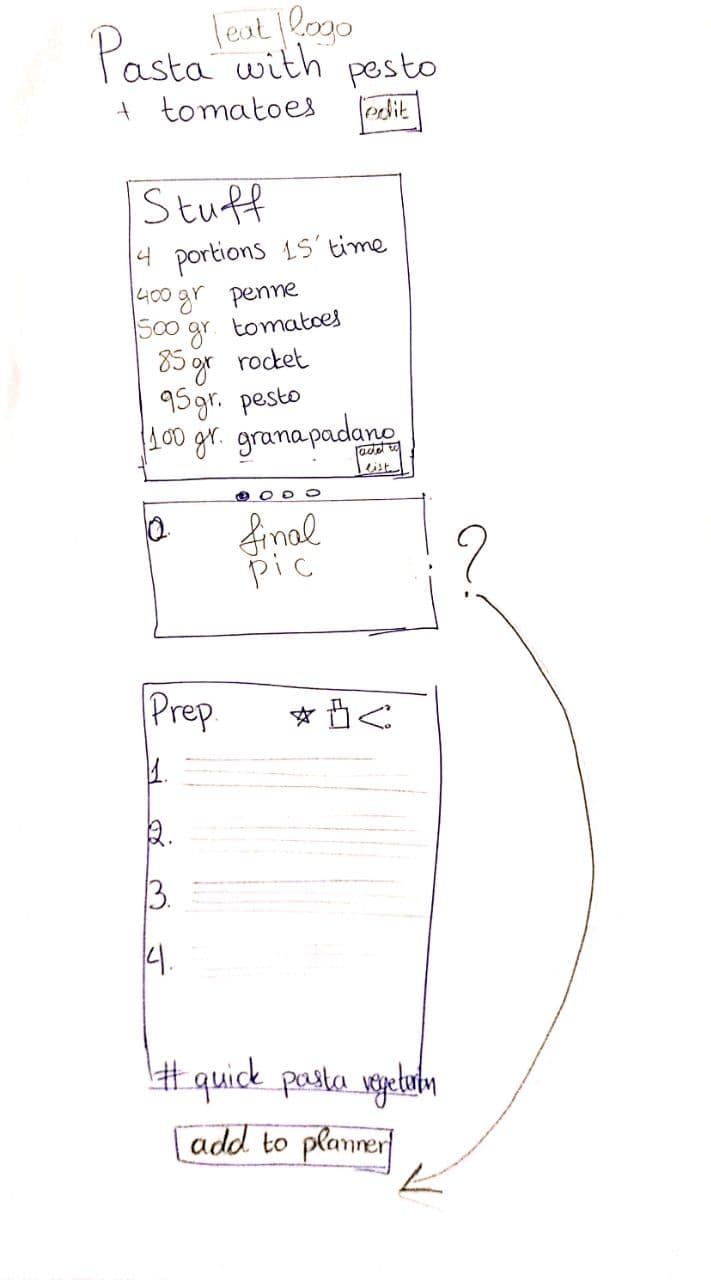 eat logo
Pasta with pesto
+ tomatoes edit
Stuff
4 portions 15' time
400 gr penne
500 gr. tomatoes
85 gr rocket
95 gr. pesto
100 gr. grana padano
add to
list
final
pic
?
Prep.
1.
2.
3.
4.
# quick pasta vegetarian
add to planner